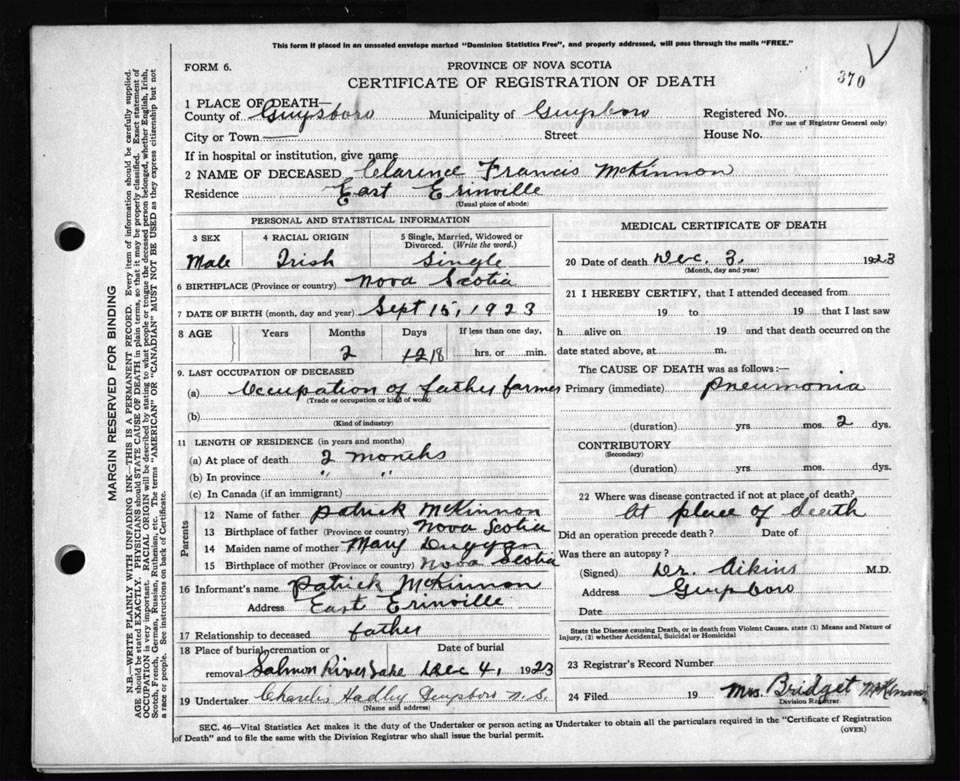 This form if placed in an unsealed envelope marked "Dominion Statistics Free", and properly addressed, will pass through the mails "FREE."
FORM 6.
PROVINCE OF NOVA SCOTIA
370
CERTIFICATE OF REGISTRATION OF DEATH
1 PLACE OF DEATH—
County of Guysboro Municipality of Guysboro Registered No.
(For use of Registrar General only)
City or Town Street House No.
If in hospital or institution, give name
2 NAME OF DECEASED Clarence Francis McKinnon
Residence East Erinville
(Usual place of abode)
PERSONAL AND STATISTICAL INFORMATION
3 SEX 4 RACIAL ORIGIN 5 Single, Married, Widowed or Divorced. (Write the word.)
Male Irish Single
6 BIRTHPLACE (Province or country) Nova Scotia
7 DATE OF BIRTH (month, day and year) Sept 15, 1923
8 AGE Years Months Days If less than one day,
2 18 hrs. or min.
9. LAST OCCUPATION OF DECEASED
(a) Occupation of father farmer
(Trade or occupation or kind of work)
(b)
(Kind of industry)
11 LENGTH OF RESIDENCE (in years and months)
(a) At place of death 2 months
(b) In province " "
(c) In Canada (if an immigrant)
Parents
12 Name of father Patrick McKinnon
13 Birthplace of father (Province or country) Nova Scotia
14 Maiden name of mother Mary Duggan
15 Birthplace of mother (Province or country) Nova Scotia
16 Informant's name Patrick McKinnon
Address East Erinville
17 Relationship to deceased father
18 Place of burial, cremation or Date of burial
removal Salmon River Lake Dec 4, 1923
19 Undertaker Charles Hadley Guysboro N.S.
(Name and address)
MEDICAL CERTIFICATE OF DEATH
20 Date of death Dec. 3, 1923
(Month, day and year)
21 I HEREBY CERTIFY, that I attended deceased from
19 to 19 that I last saw
h alive on 19 and that death occurred on the
date stated above, at m.
The CAUSE OF DEATH was as follows:—
Primary (immediate) Pneumonia
(duration) yrs. mos. 2 dys.
CONTRIBUTORY
(Secondary)
(duration) yrs. mos. dys.
22 Where was disease contracted if not at place of death?
At place of death
Did an operation precede death? Date of
Was there an autopsy?
(Signed) Dr. Aikins M.D.
Address Guysboro
Date
State the Disease causing Death, or in death from Violent Causes, state (1) Means and Nature of Injury, (2) whether Accidental, Suicidal or Homicidal
23 Registrar's Record Number
24 Filed 19 Mrs. Bridget McKinnon
Division Registrar
SEC. 46—Vital Statistics Act makes it the duty of the Undertaker or person acting as Undertaker to obtain all the particulars required in the "Certificate of Registration
of Death" and to file the same with the Division Registrar who shall issue the burial permit.
(OVER)
MARGIN RESERVED FOR BINDING
N.B.—WRITE PLAINLY WITH UNFADING INK—THIS IS A PERMANENT RECORD. Every item of information should be carefully supplied.
AGE should be stated EXACTLY. PHYSICIANS should STATE CAUSE OF DEATH in plain terms, so that it may be properly classified. Exact statement of
OCCUPATION is very important. RACIAL ORIGIN will be described by stating to what people or tongue the deceased person belonged, whether English, Irish,
Scotch, French, German, Russian, Ruthenian, etc. The terms "AMERICAN" OR "CANADIAN" MUST NOT BE USED as they express citizenship but not
a race or people. See instructions on back of Certificate.